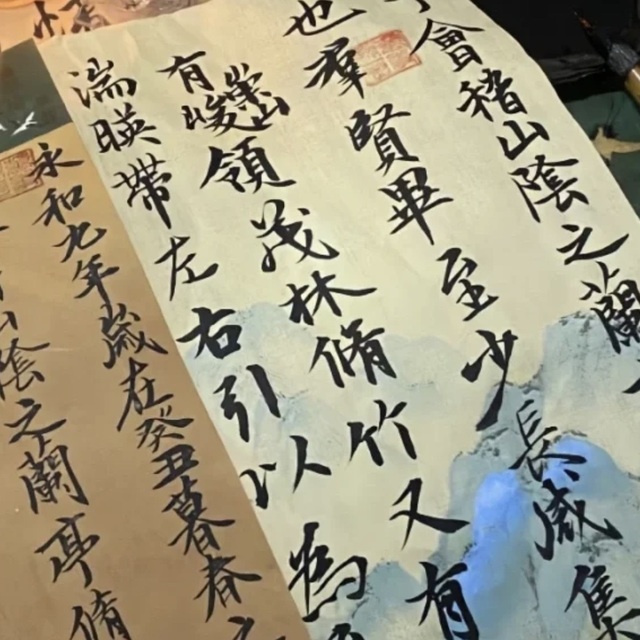 會稽山陰之蘭
也羣賢畢至少長咸集
有崇山峻領茂林脩竹又有
湍暎帶左右引以為
永和九年歲在癸丑暮春之
山陰之蘭亭脩